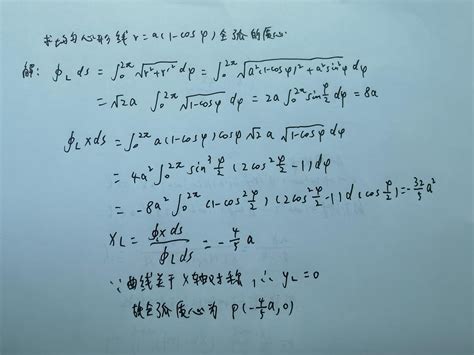 求均匀心形线 r=a(1-cosφ) 全弧的质心
解: ∮_L ds = ∫_0^{2π} √(r²+r'²) dφ = ∫_0^{2π} √(a²(1-cosφ)²+a²sin²φ) dφ
= √2a ∫_0^{2π} √(1-cosφ) dφ = 2a ∫_0^{2π} sin φ/2 dφ = 8a
∮_L xds = ∫_0^{2π} a(1-cosφ)cosφ √2 a √(1-cosφ) dφ
= 4a² ∫_0^{2π} sin³ φ/2 (2cos² φ/2 -1) dφ
= -8a² ∫_0^{2π} (1-cos² φ/2) (2cos² φ/2 -1) d(cos φ/2) = -32/5 a²
x_L = ∮xds / ∮_L ds = -4/5 a
∵曲线关于x轴对称, ∴ y_L=0
故全弧质心为 P(-4/5 a, 0)